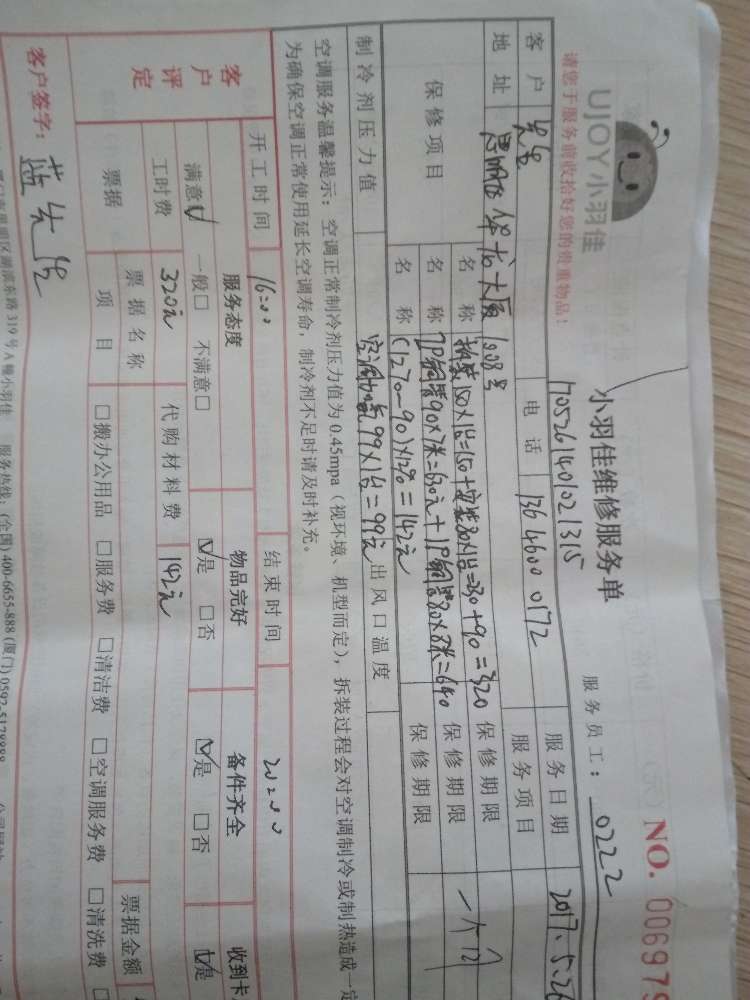 UJOY小羽佳
请您于服务前收拾好您的贵重物品！
小羽佳维修服务单
NO. 006979
1705261401021315
服务员工：0222
客户 电话 136 4600 0172 服务日期 2017.5.26
地址 1008号 服务项目
保修项目
名称 拆装150×1台=150+安装80×1台=230+90=320 保修期限
名称 2P铜管90×7米=630元+1P铜管80×8米=640 保修期限 一个月
名称 (1270-90)×12%=142元 保修期限
制冷剂压力值 空调加氟99×1台=99元 出风口温度
空调服务温馨提示：空调正常制冷剂压力值为0.45mpa（视环境、机型而定），拆装过程会对空调制冷或制热造成一定
为确保空调正常使用延长空调寿命，制冷剂不足时请及时补充。
客户评定
开工时间 16:00 结束时间 20:00
服务态度 物品完好 备件齐全 收到卡
满意☑ 一般□ 不满意□ ☑是 □否 ☑是 □否 ☑是
工时费 320元 代购材料费 142元
票据 票据名称 票据金额
项目 □搬办公用品 □服务费 □清洁费 □空调服务费 □清洗费
客户签字： 蓝先生
湖滨东路319号A幢小羽佳 服务热线：(全国) 400-6655-888 (厦门) 0592-5178888